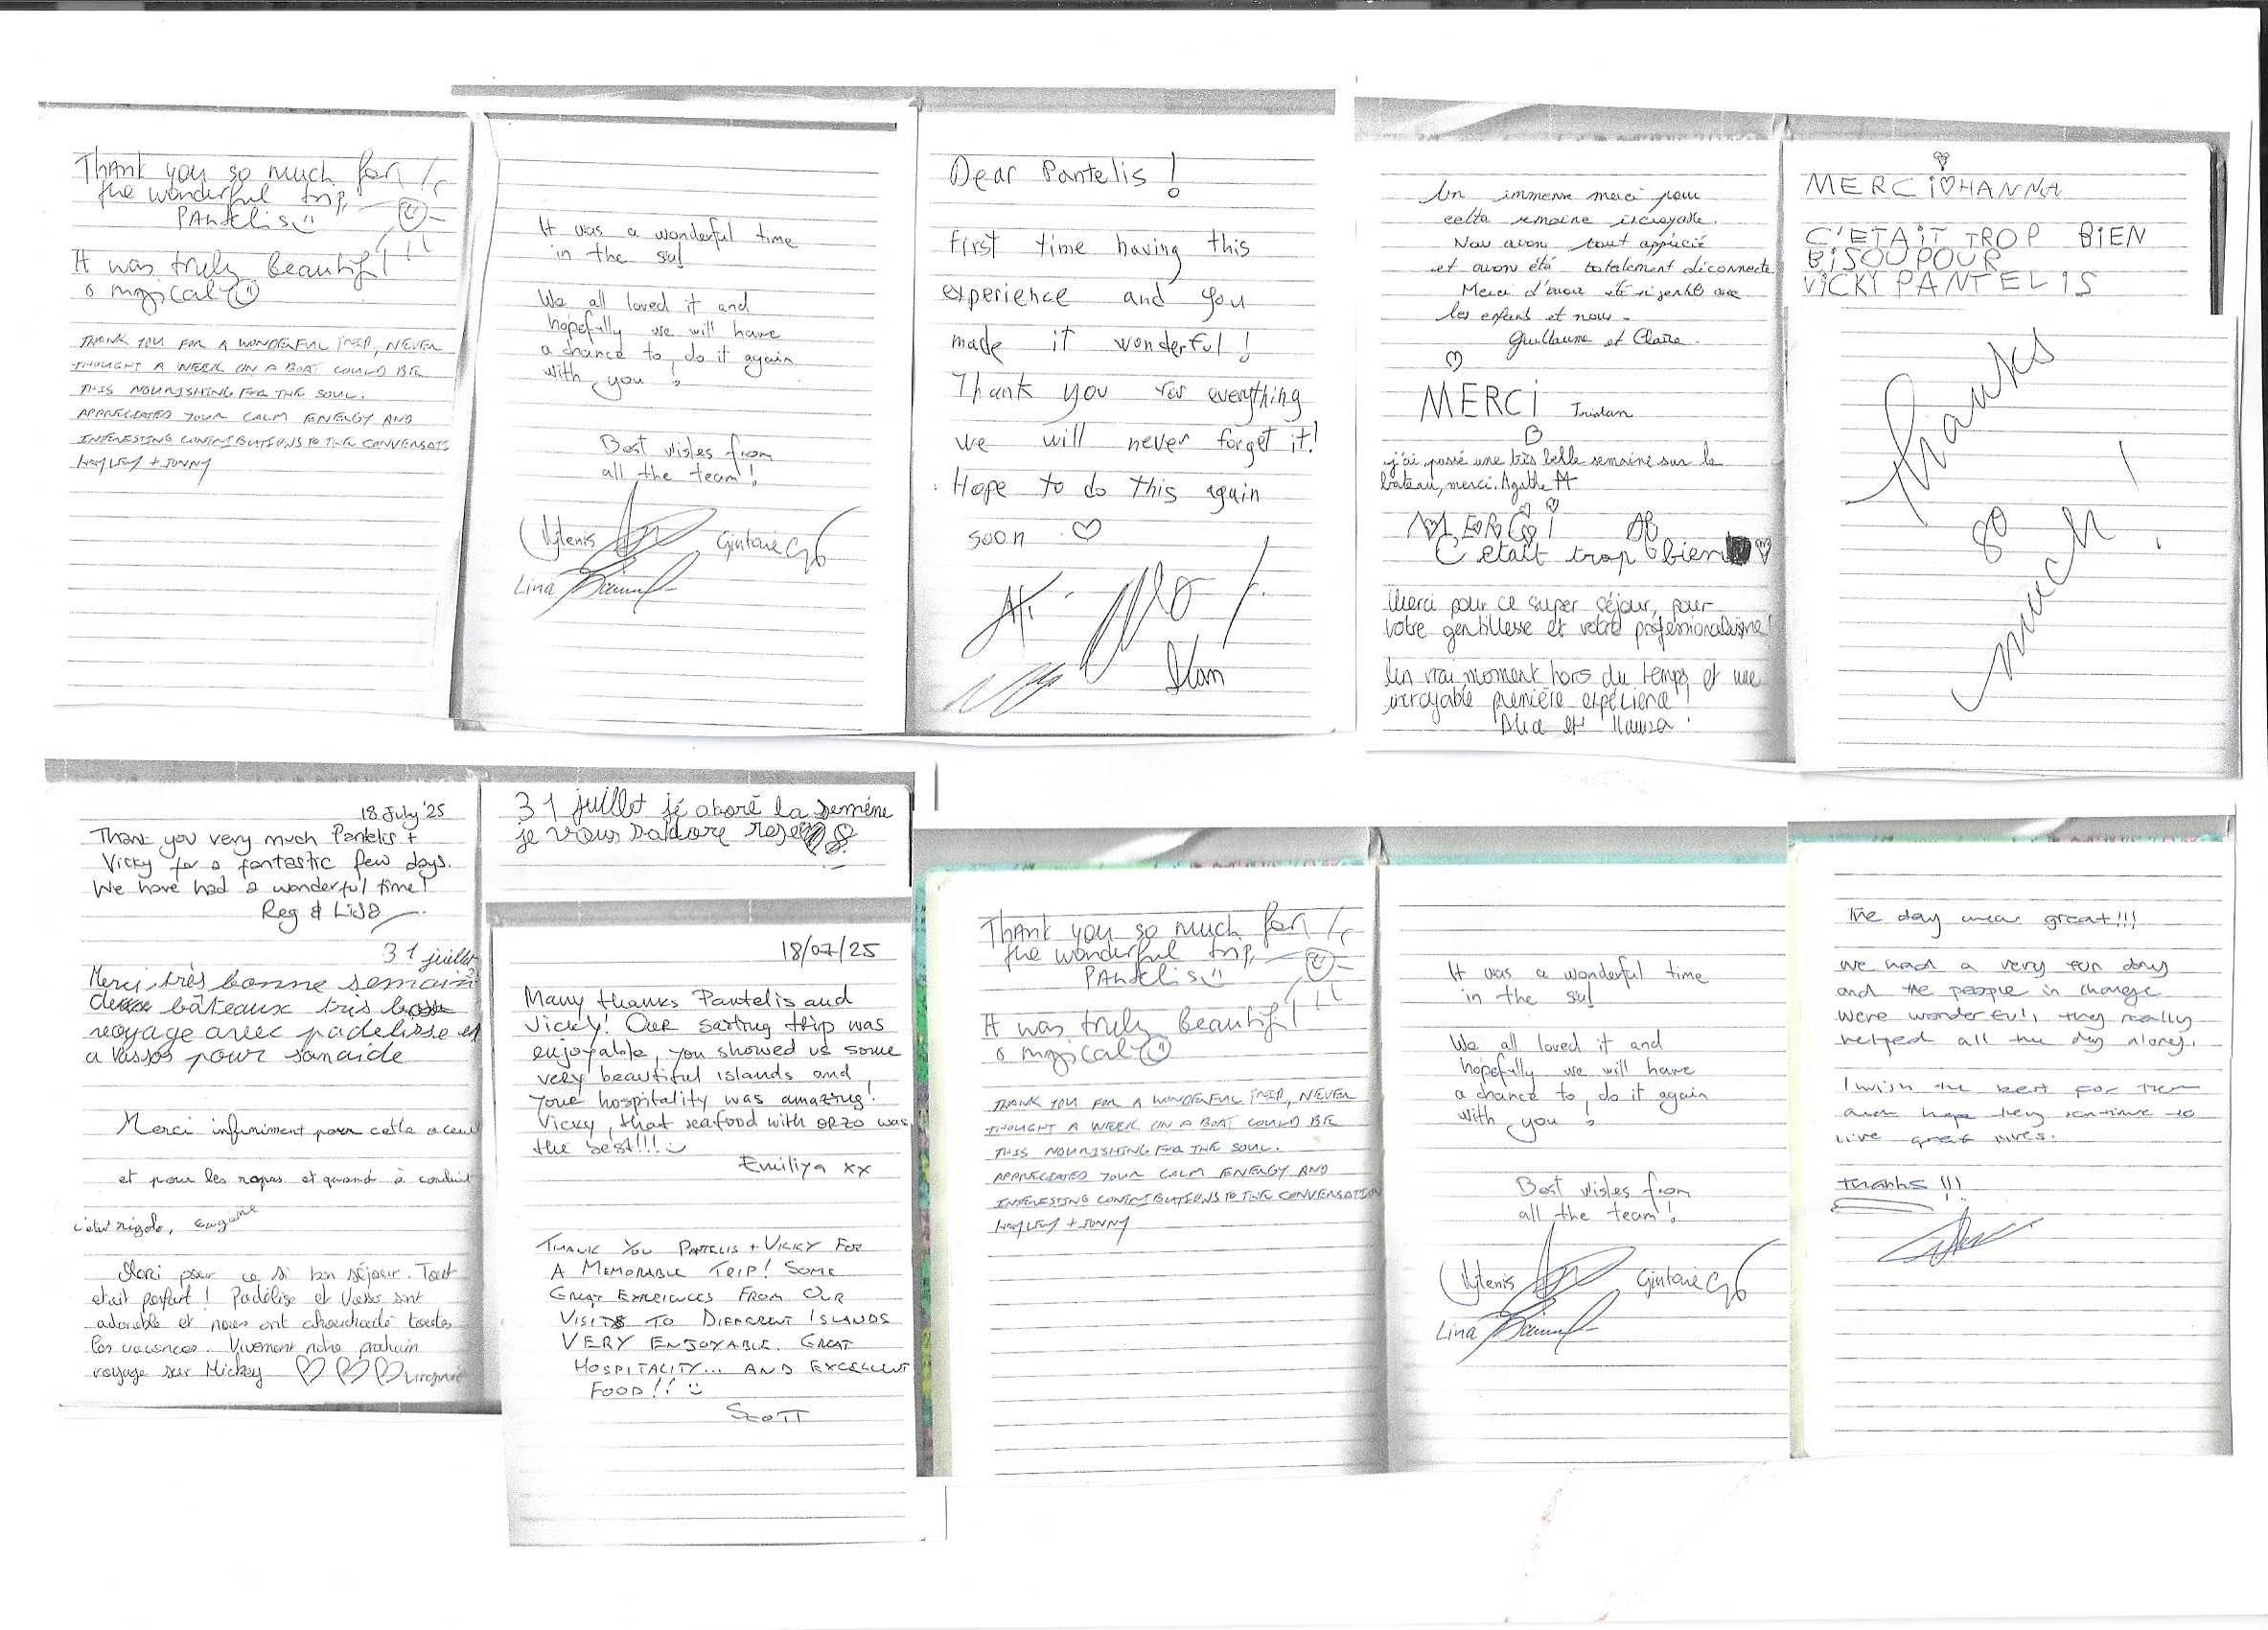 Thank you so much for
the wonderful trip,
PAntelis
It was truly beautiful
& magical
THANK YOU FOR A WONDERFUL TRIP, NEVER
THOUGHT A WEEK ON A BOAT COULD BE
THIS NOURISHING FOR THE SOUL.
APPRECIATED YOUR CALM ENERGY AND
INTERESTING CONTRIBUTIONS TO THE CONVERSATI
HAYLEY + JONNY
It was a wonderful time
in the
We all loved it and
hopefully we will have
a chance to do it again
with you!
Best wishes from
all the team!
Vytenis
Gintarė
Lina
Dear Pantelis!
First time having this
experience and you
made it wonderful!
Thank you for everything
we will never forget it!
Hope to do this again
soon
Un immense merci pour
cette semaine incroyable.
Nous avons tout apprécié
et avons été totalement déconnecté
Merci d'avoir été si gentils avec
les enfants et nous.
Guillaume et Claire
MERCi Tristan
j'ai passé une très belle semaine sur le
bateau, merci. Agathe
MERCi
C'etait trop bien
Merci pour ce super séjour, pour
votre gentillesse et votre professionalisme!
Un vrai moment hors du temps et une
incroyable première expérience!
MERCi HANNA
C'ETAiT TROP BiEN
BiSOU POUR
ViCKY PANTELiS
thanks
so
much!
18 July '25
Thank you very much Pantelis +
Vicky for a fantastic few days.
We have had a wonderful time!
Reg & Lisa
31 juillet
Merci, très bonne semain
bâteaux très
voyage avec padelisse et
a Vassos pour son aide
Merci infiniment pour cette
et pour les repas et quand à conduit
c'était rigolo, Eugène
Merci pour ce si bon séjour. Tout
etait parfait! Padélise et Vasso sont
adorable et nous ont chouchouté toutes
les vacances. Vivement notre prochain
voyage sur Mickey
31 juillet jé adoré la semène
je vous
18/07/25
Many thanks Pantelis and
Vicky! Our sailing trip was
enjoyable, you showed us some
very beautiful islands and
your hospitality was amazing!
Vicky, that seafood with orzo was
the best!!!
Emiliya xx
THANK YOU PANTELIS + VICKY FOR
A MEMORABLE TRIP! SOME
GREAT EXPERIENCES FROM OUR
VISITS TO DIFFERENT ISLANDS
VERY ENJOYABLE. GREAT
HOSPITALITY... AND EXCELLENT
FOOD!!
SCOTT
Thank you so much for
the wonderful trip,
PAntelis
It was truly beautiful
& magical
THANK YOU FOR A WONDERFUL TRIP, NEVER
THOUGHT A WEEK ON A BOAT COULD BE
THIS NOURISHING FOR THE SOUL.
APPRECIATED YOUR CALM ENERGY AND
INTERESTING CONTRIBUTIONS TO THE CONVERSATION
HAYLEY + JONNY
It was a wonderful time
in the
We all loved it and
hopefully we will have
a chance to do it again
with you!
Best wishes from
all the team!
Vytenis
Gintarė
Lina
The day was great!!!
we had a very fun day
and the people in charge
were wonderful, they really
helped all the day along.
I wish the best for them
and hope they continue to
live great lives.
thanks!!!